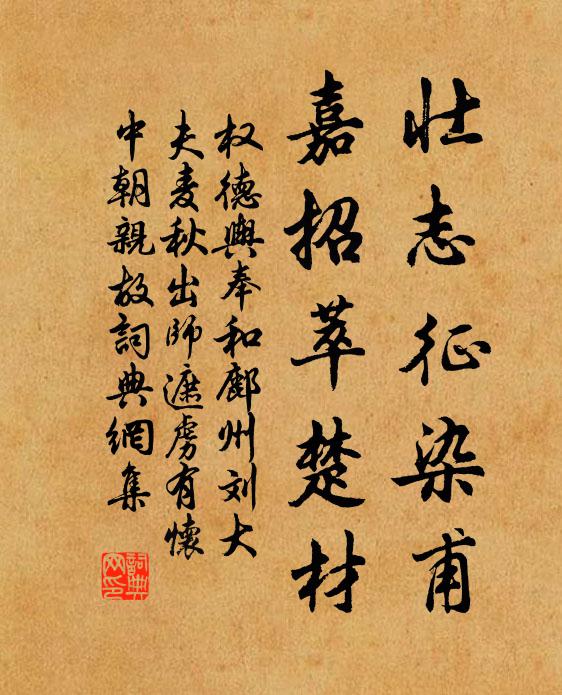 壮志征染甫
嘉招萃楚材
权德與奉和鄜州刘大
夫麦秋出师遮虏有懷
中朝親故詞典網集
詞典网印